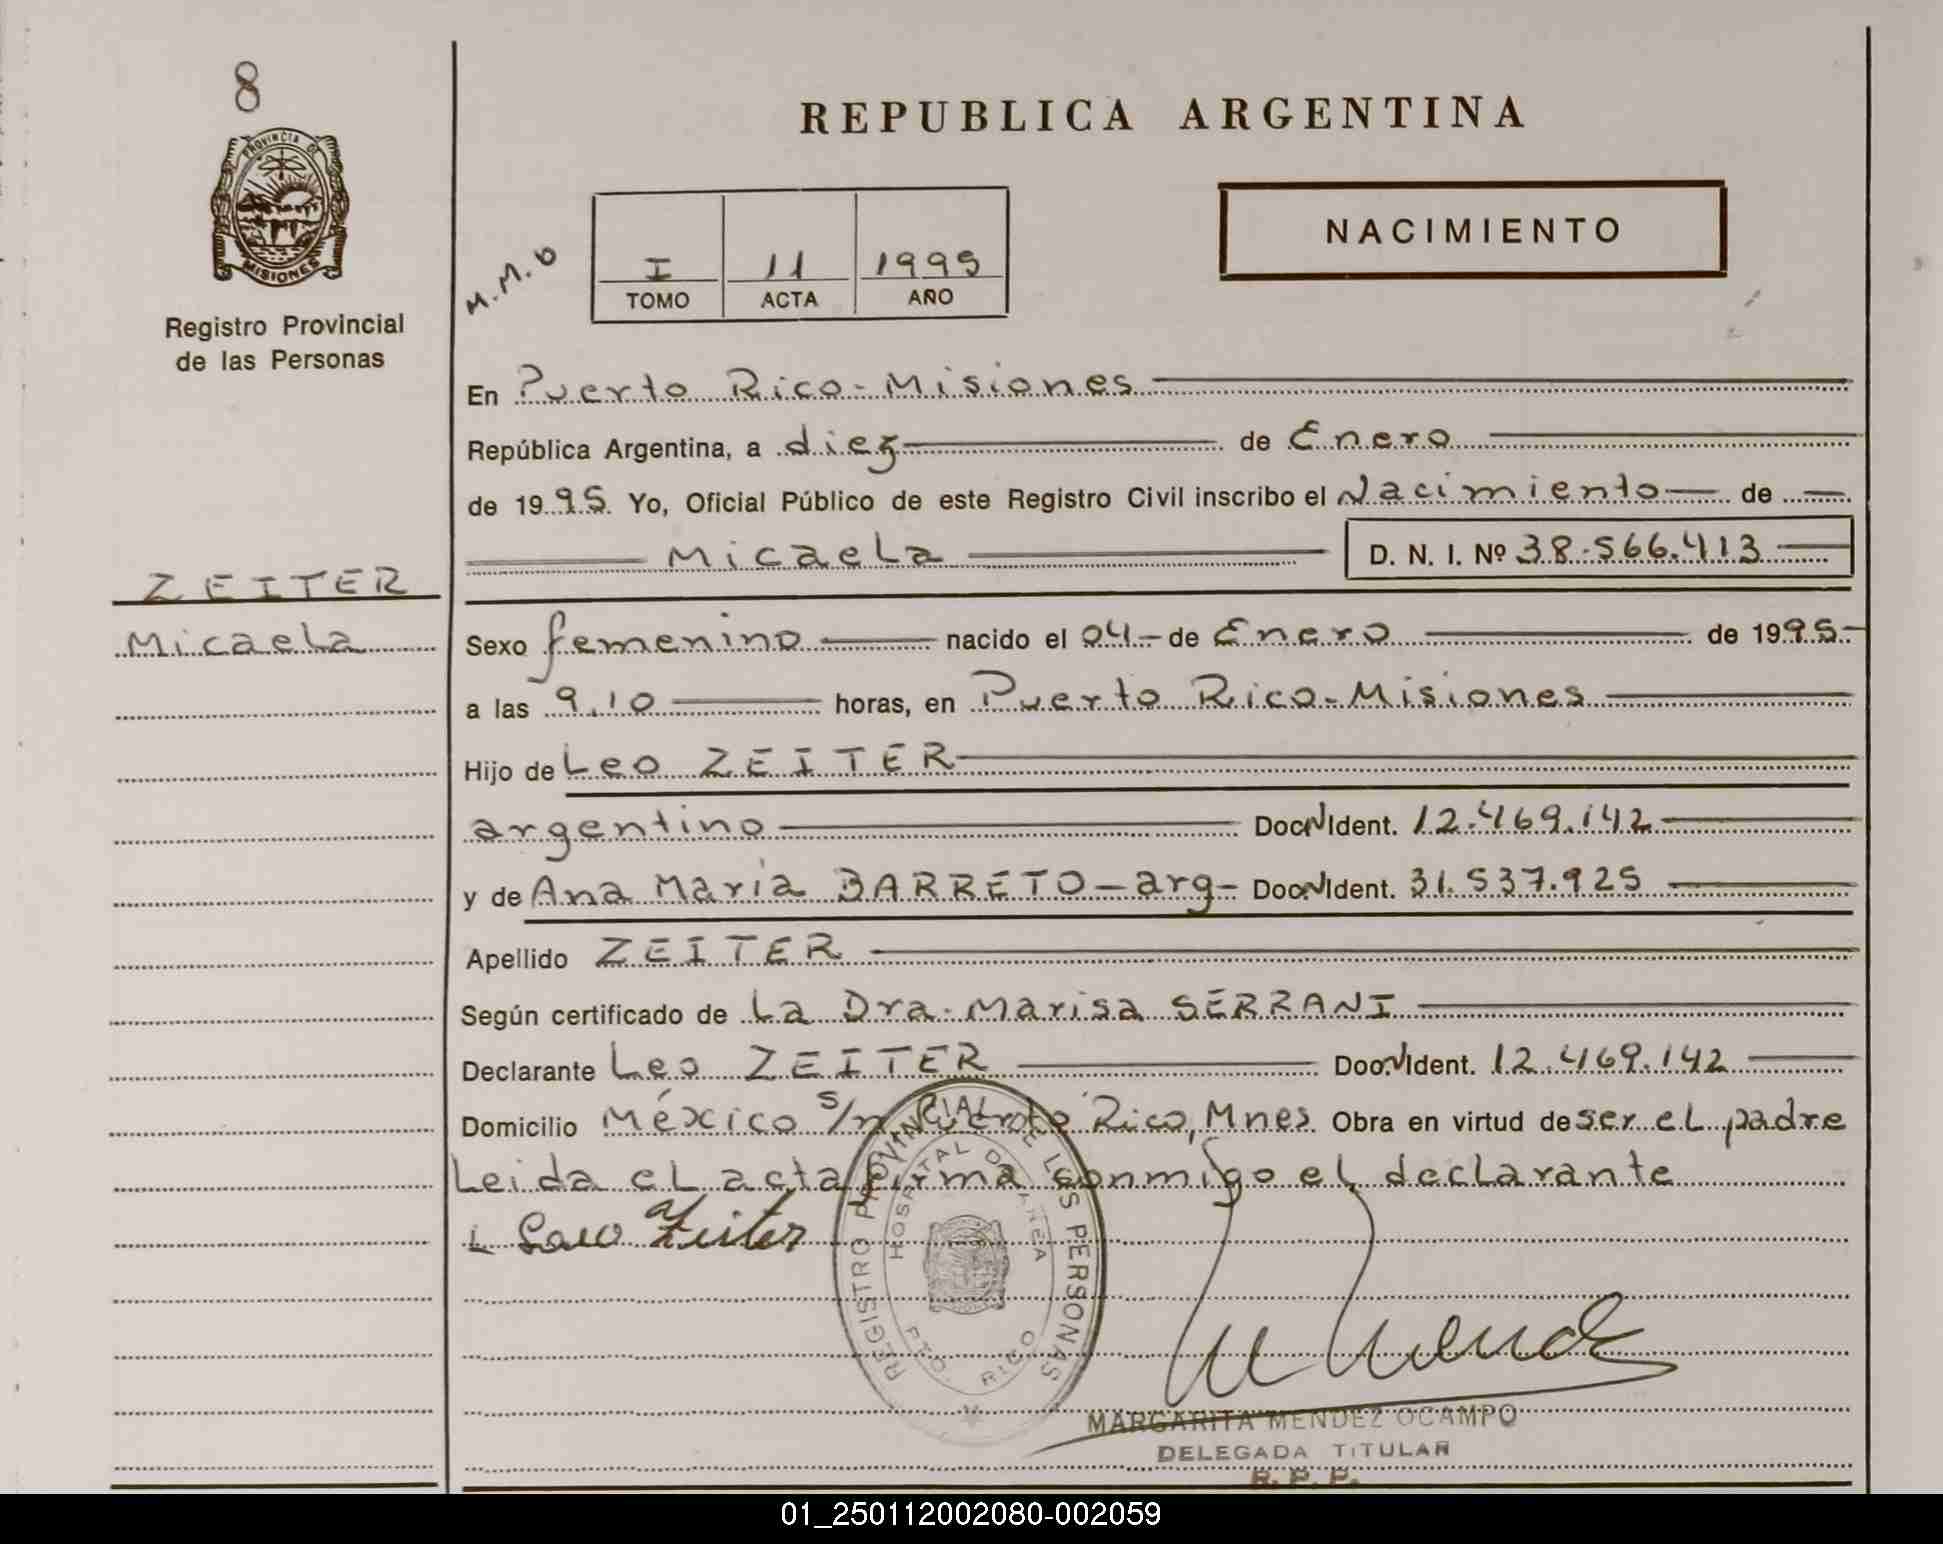 8
PROVINCIA DE
MISIONES
Registro Provincial
de las Personas
REPUBLICA ARGENTINA
NACIMIENTO
M.M.O
I 11 1995
TOMO ACTA AÑO
En Puerto Rico-Misiones
República Argentina, a diez de Enero
de 1995 Yo, Oficial Público de este Registro Civil inscribo el Nacimiento de
Micaela D. N. I. Nº 38.566.413
ZEITER
Micaela
Sexo femenino nacido el 04 de Enero de 1995
a las 9.10 horas, en Puerto Rico-Misiones
Hijo de Leo ZEITER
argentino Doc N Ident. 12.469.142
y de Ana Maria BARRETO - arg - Doc N Ident. 31.537.925
Apellido ZEITER
Según certificado de La Dra. Marisa SERRANI
Declarante Leo ZEITER Doc N Ident. 12.469.142
Domicilio México s/n Puerto Rico, Mnes Obra en virtud de ser el padre
Leida el acta firma conmigo el declarante
Zeiter
REGISTRO PROVINCIAL DE LAS PERSONAS
HOSPITAL DE AREA
PTO. RICO
MARGARITA MENDEZ OCAMPO
DELEGADA TITULAR
R. P. P.
01_250112002080-002059